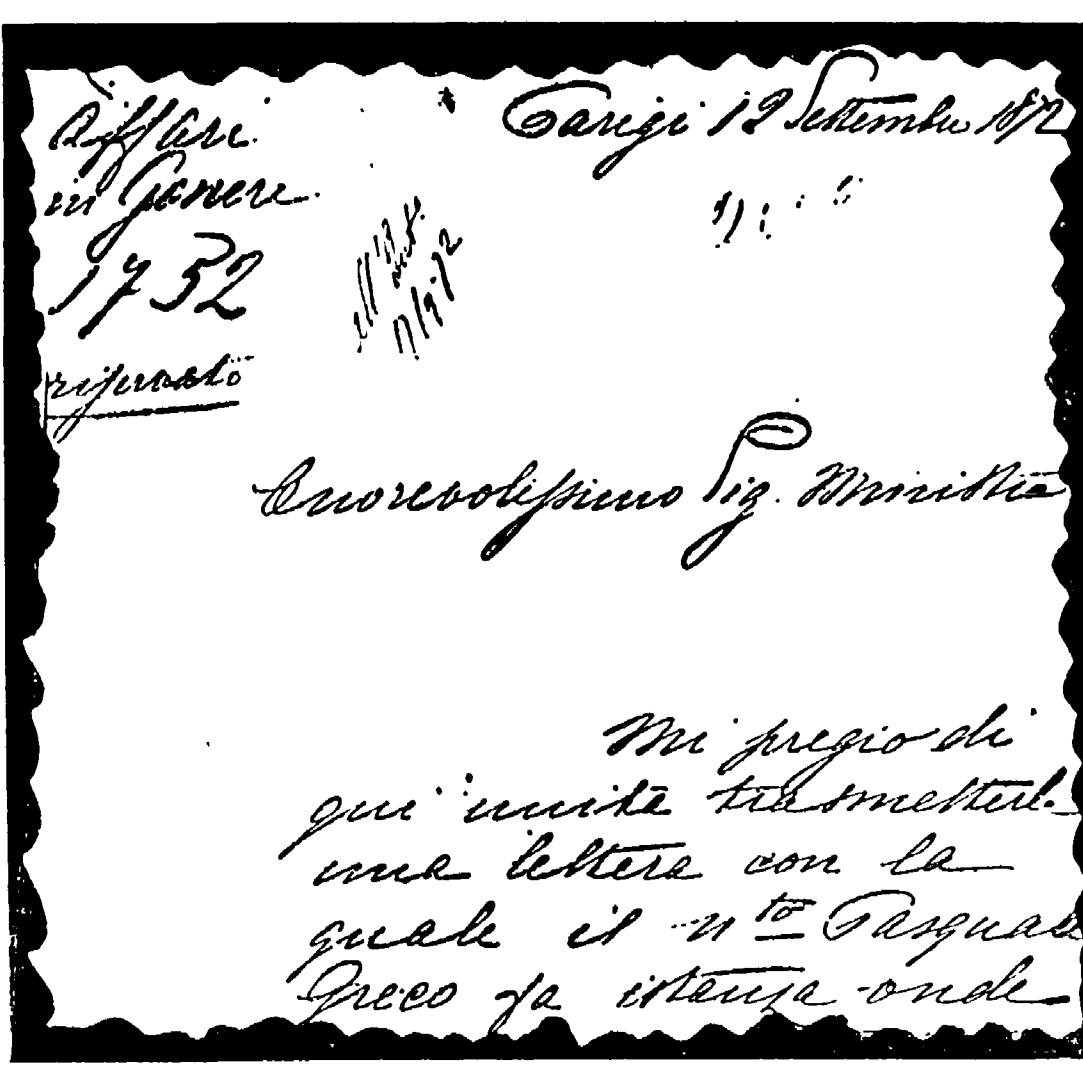 Affari
in Genere
1732
riservato
Parigi 12 Settembre 1872
Onorevolissimo Sig. Ministro
Mi pregio di
qui unita trasmetterle
una lettera con la
quale il n.to Pasquale
Greco fa istanza onde